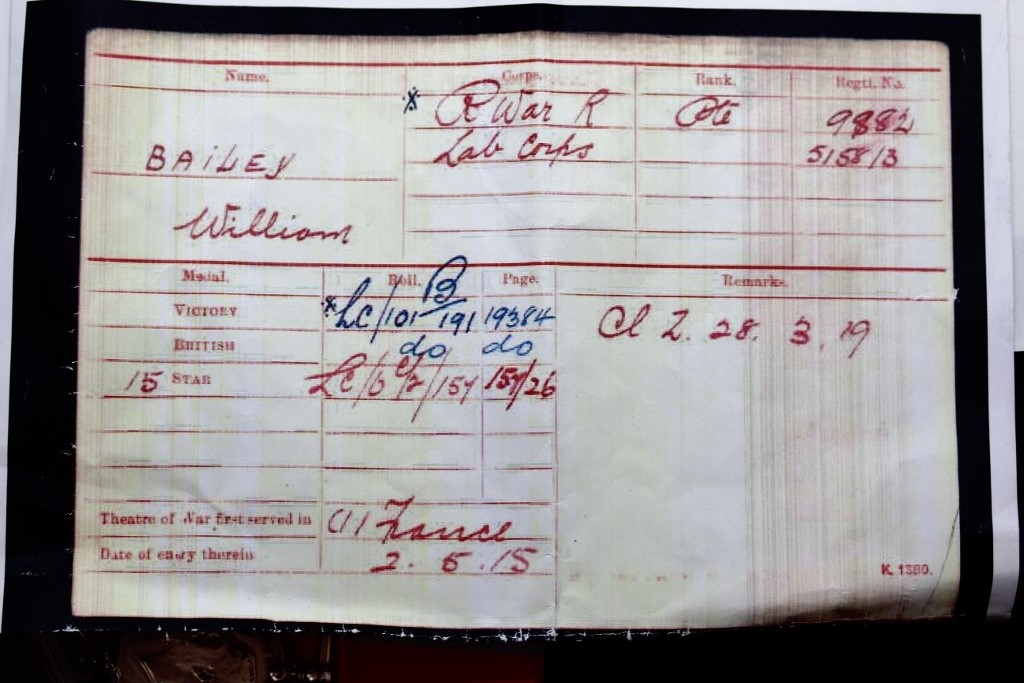 Name. Corps. Rank. Regtl. No.
* R War R Pte 9882
BAILEY Lab Corps 515813
William
Medal. Roll. Page. Remarks.
VICTORY * LC/101 B 191 19384 Cl Z. 28. 3. 19
BRITISH do do
15 STAR LC/6 /157 157/26
Theatre of War first served in (1) France
Date of entry therein 2. 5. 15
K. 1380.